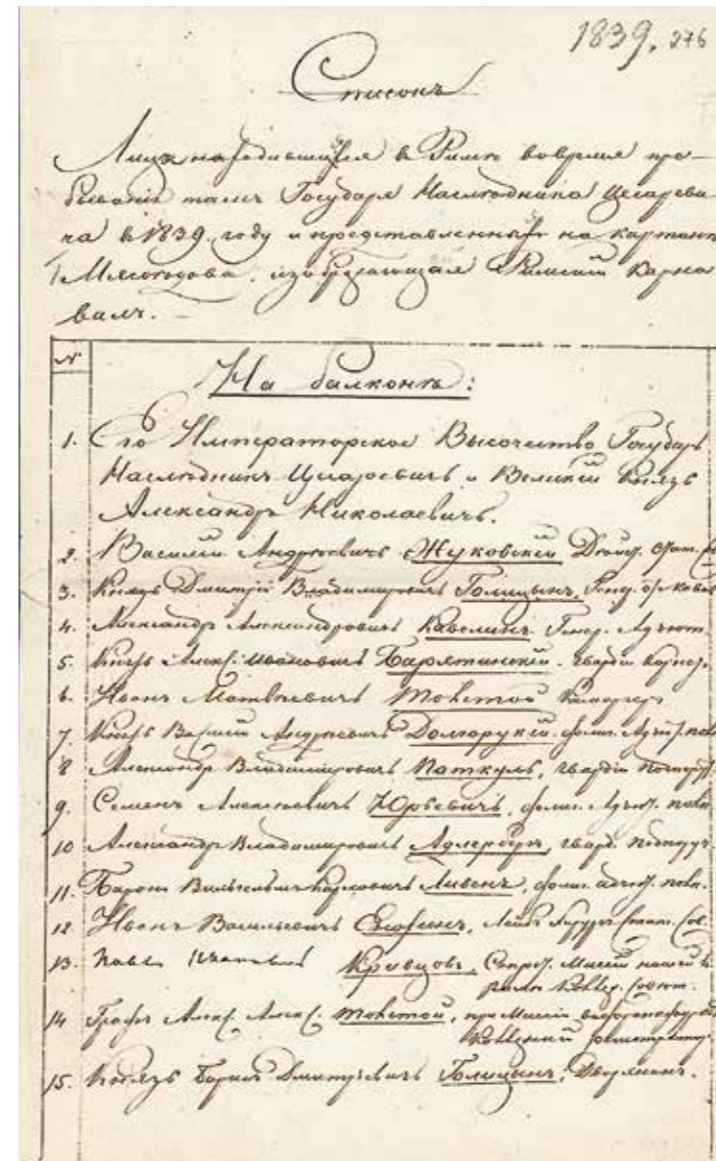 1839. 276
Списокъ
Лица находившiяся в Римѣ вовремя пре-
быванiя тамъ Государя Наслѣдника Цесареви-
ча в 1839 году и представленныя на картинѣ
Мясоѣдова, изображающая Римскiй Карна
валъ.
N
На балконѣ:
1. Его Императорское Высочество Государь
Наслѣдникъ Цесаревичъ и Великiй Князь
Александръ Николаевичъ.
2. Василiй Андреевичъ Жуковскiй
3. Князь Дмитрiй Владимировичъ Голицынъ,
4. Александръ Александровичъ Кавелинъ. Генер. Адъют.
5. Князь Алекс. Ивановичъ Барятинскiй. гвардiи
6. Иванъ Матвѣевичъ Толстой
7. Князь Василiй Андреевичъ Долгорукiй. флиг. Адъют.
8 Александръ Владимировичъ Паткуль, гвардiи
9. Семенъ Алексѣевичъ Юрьевичъ, флиг. Адъют.
10 Александръ Владимировичъ Адлербергъ, гвард.
11. Баронъ Вильгельмъ Карловичъ Ливенъ, флиг. адъют.
12 Иванъ Васильевичъ Енохинъ,
13. Павелъ Ивановичъ Кривцовъ,
14 Графъ Алекс. Алекс. Толстой, при Миссiи
15. Князь Борисъ Дмитрiевичъ Голицынъ,